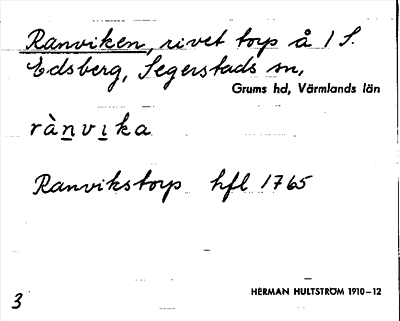 Ranviken, rivet torp å 1 S.
Edsberg, Segerstads sn,
Grums hd, Värmlands län
rànvika
Ranvikstorp hfl 1765
HERMAN HULTSTRÖM 1910–12
3